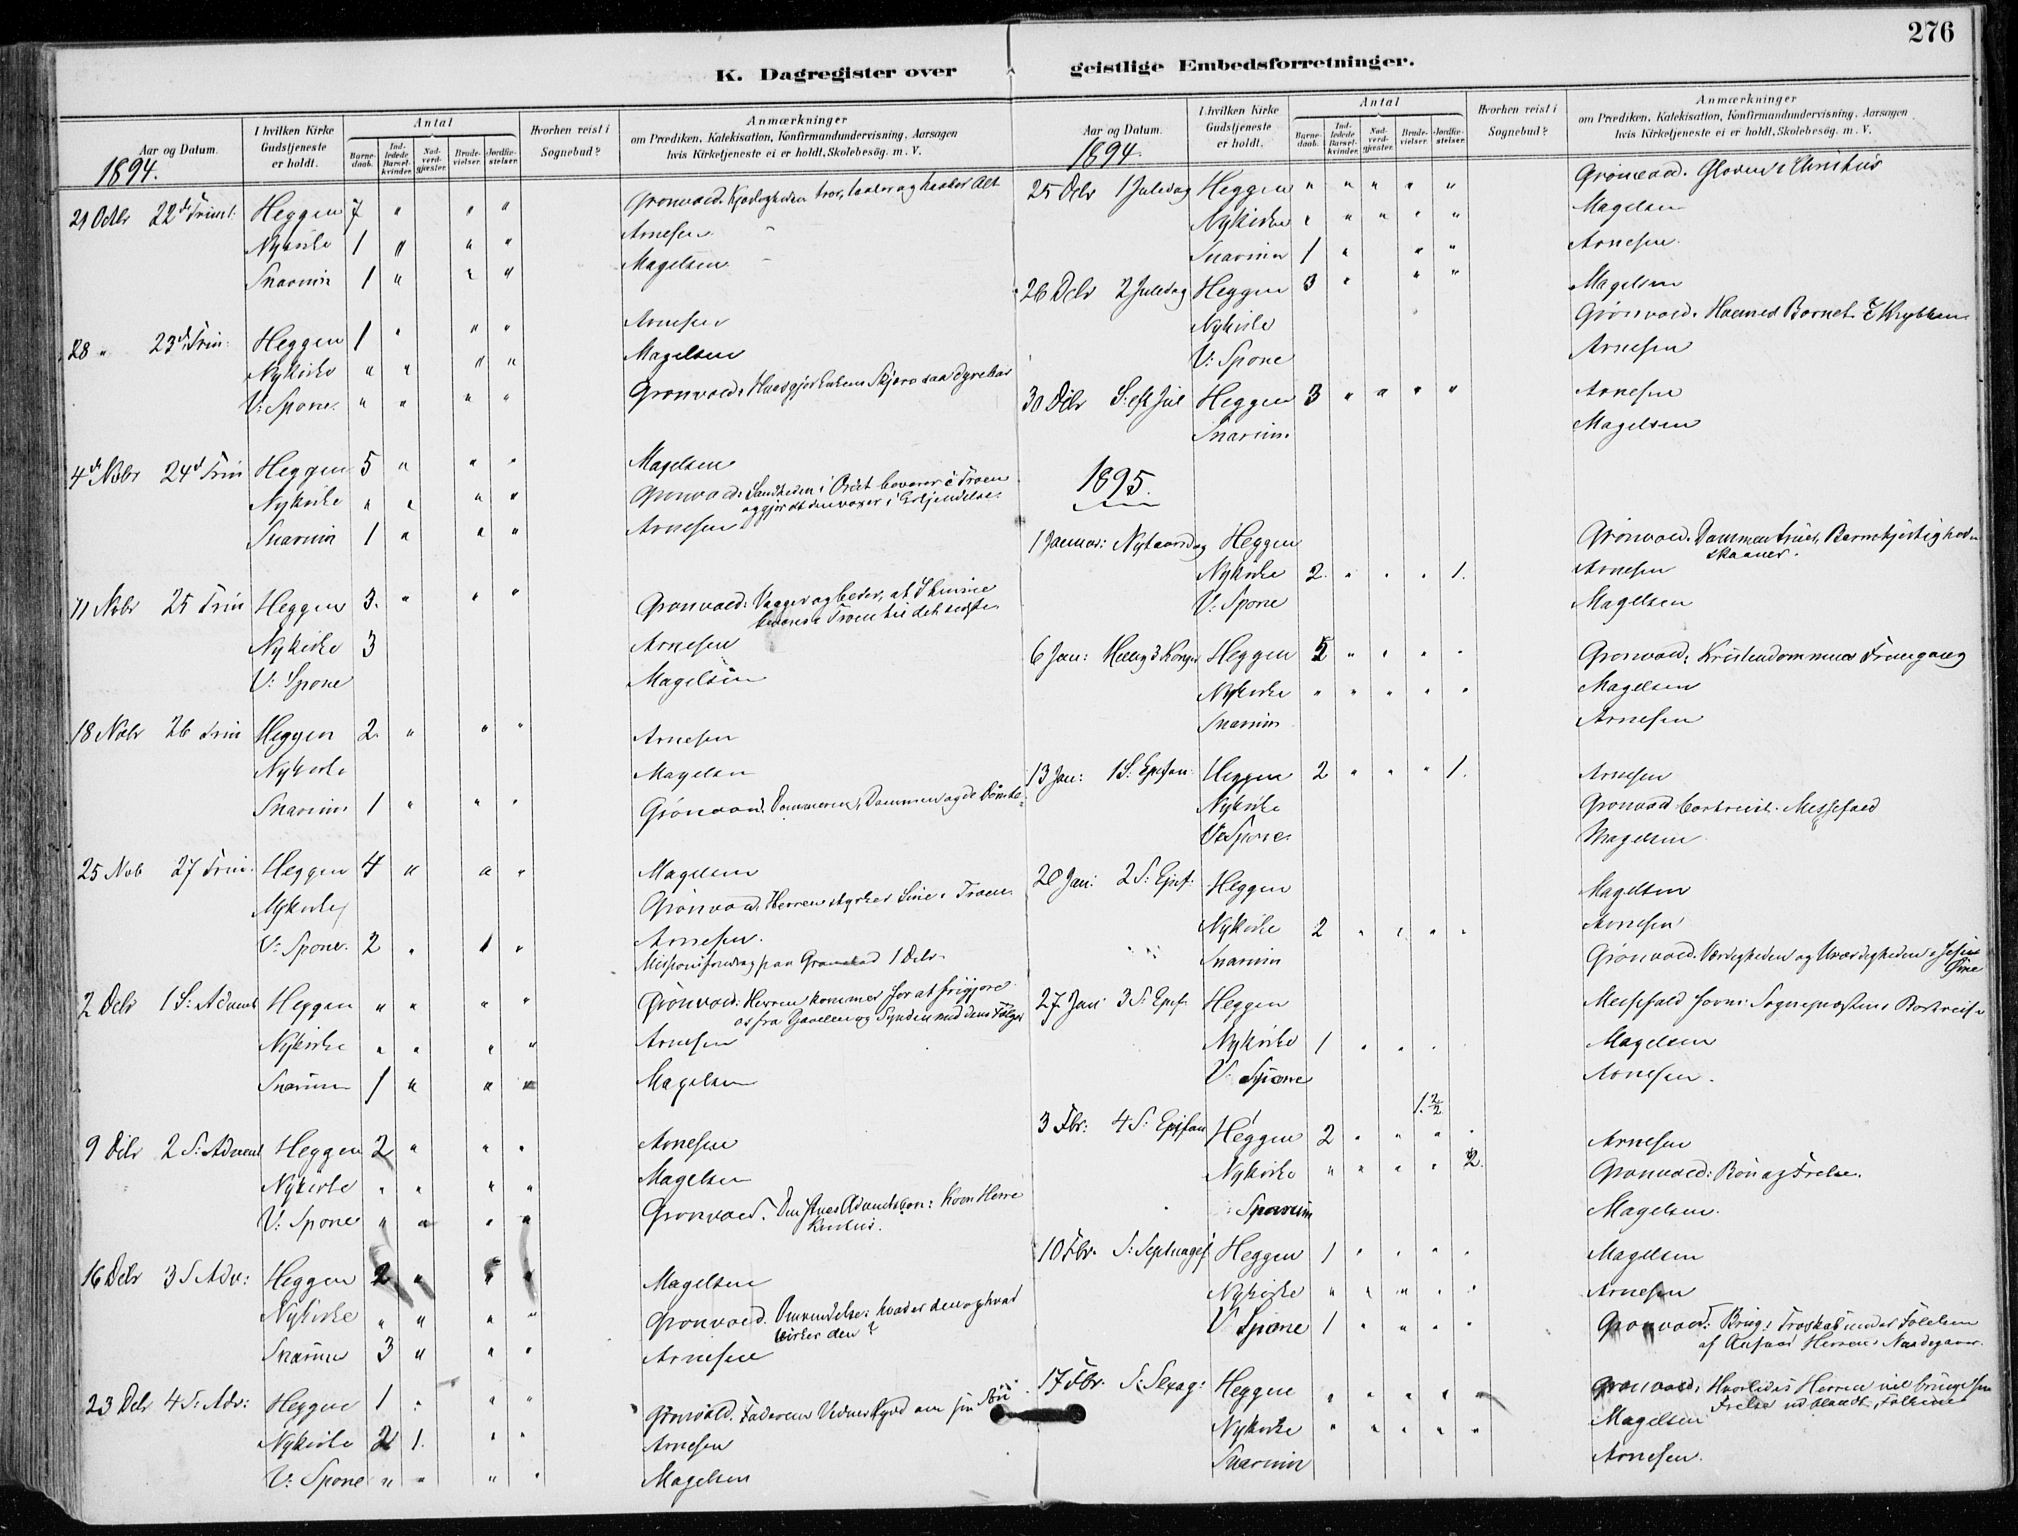 276
K. Dagregister over geistlige Embedsforretninger.
Aar og Datum.
I hvilken Kirke Gudstjeneste er holdt.
Antal
Barne-daab.
Ind-ledede Barsel-kvinder.
Nad-verd-gjæster.
Brude-vielser.
Jordfæ-stelser.
Hvorhen reist i Sognebud?
Anmærkninger
om Prædiken, Katekisation, Konfirmandundervisning, Aarsagen
hvis Kirketjeneste ei er holdt, Skolebesög. m. V.
1894.
21 Octbr 22d Trinit. Heggen 7 " " " Grønvold. Kjærligheden tror, taaler og haaber Alt
Nykirke 1 " " " Arnesen
Snarum 1 " " " Magelsen
28 " 23d Trin. Heggen 1 " " " Arnesen
Nykirke " " " " Magelsen
V: Spone. " " " " Grønvold.
4de Nvbr 24d Trin Heggen 5 " " " Magelsen
Nykirke " " " " Grønvold. Sandheden i Ordet bevarer i Troen
og gjør at den voxer i Erkjendelse.
Snarum 1 " " " Arnesen
11 Nvbr 25 Trin Heggen 3. " " " Grønvold: Vaager og beder, at I kunne
bevares i Troen til det sidste
Nykirke 3 Arnesen
V: Spone Magelsen
18 Nvbr 26 Trin Heggen 2. " " " Arnesen
Nykirke Magelsen
Snarum 1 " " " Grønvold. Dommeren, Dommen og de Dømte.
25 Nvb 27 Trin. Heggen 4 " " " Magelsen
Nykirke Grønvold. Herren styrker Sine i Troen
V: Spone. 2 " 1 " Arnesen.
Missionsforedrag paa 1 Debr.
2 Debr 1 S: Advent Heggen " " " " Grønvold: Herren kommer for at frigjøre
os fra Djævelen og Synden med dens Følger
Nykirke " " " " Arnesen
Snarum 1 " " " Magelsen
9 Debr 2 S: Advent Heggen 2 " " " Arnesen
Nykirke " " " " Magelsen
V: Spone " " " " Grønvold. Den Adventsbøn: Kom Herre
16 Debr 3 S Adv: Heggen 2 " " " Magelsen
Nykirke " " " " Grønvold. Omvendelse: hvad er den og hvad
virker den?
Snarum 3 " " " Arnesen
23 Debr 4 S: Adv: Heggen 1 " " " Grønvold. Faderens Vidnesbyrd om sin Søn
Nykirke 2 1. " " Arnesen
V: Spone " " " " Magelsen
Aar og Datum.
I hvilken Kirke Gudstjeneste er holdt.
Antal
Barne-daab.
Ind-ledede Barsel-kvinder.
Nad-verd-gjæster.
Brude-vielser.
Jordfæ-stelser.
Hvorhen reist i Sognebud?
Anmærkninger
om Prædiken, Katekisation, Konfirmandundervisning, Aarsagen
hvis Kirketjeneste ei er holdt, Skolebesög. m. V.
1894.
25 Debr 1 Juledag Heggen " " " " " Grønvold. Christus
Nykirke " " " " " Magelsen
Snarum 1 " " " Arnesen.
26 Debr 2 Juledag Heggen 3 " " " Magelsen
Nykirke Grønvold. Barnet i Krybben
V: Spone Arnesen
30 Debr S: eft Jul Heggen 3 " " " " Arnesen
Snarum Magelsen
1895.
1 Januar: Nytaarsdag Heggen Grønvold. Dommen truer, Barmhjertigheden
skaaner.
Nykirke 2. " " " 1. Arnesen
V: Spone Magelsen
6 Jan: Hellig 3 Konger Heggen 5 " " " " Grønvold: Kristendommens Fremgang
Nykirke " " " " " Magelsen
Snarum Arnesen
13 Jan: 1 S: Epifan: Heggen 2 " " " 1. Arnesen
Nykirke Grønvold bortreist. Messefald
V: Spone. Magelsen
20 Jan: 2 S: Epif. Heggen Magelsen
Nykirke 2 " " " " Arnesen
Snarum Grønvold. Værdigheden og Uværdigheden i Jesu
27 Jan: 3 S: Epif. Heggen Messefald form. Sognepræstens Bortreise
Nykirke 1 " " " Magelsen
V: Spone Arnesen.
1. 2/2
3 Fbr: 4 S: Epifan Heggen 2 " " " " Arnesen
Nykirke " " " " 2. Grønvold: Bøn og Frelse.
Snarum Magelsen.
10 Fbr. S: Septuages. Heggen 1 " " " " Magelsen
Nykirke " " " " " Arnesen
V Spone 1 " " " " Grønvold: Brug i Troskab under Følelsen
af Ansvar Herrens Naadegaver.
17 Fbr. S: Sexag: Heggen " " " " " Grønvold: Hvorledes Herren vil
Frelse udbredt Folkene
Nykirke " " " " " Magelsen
Snarum Arnesen.